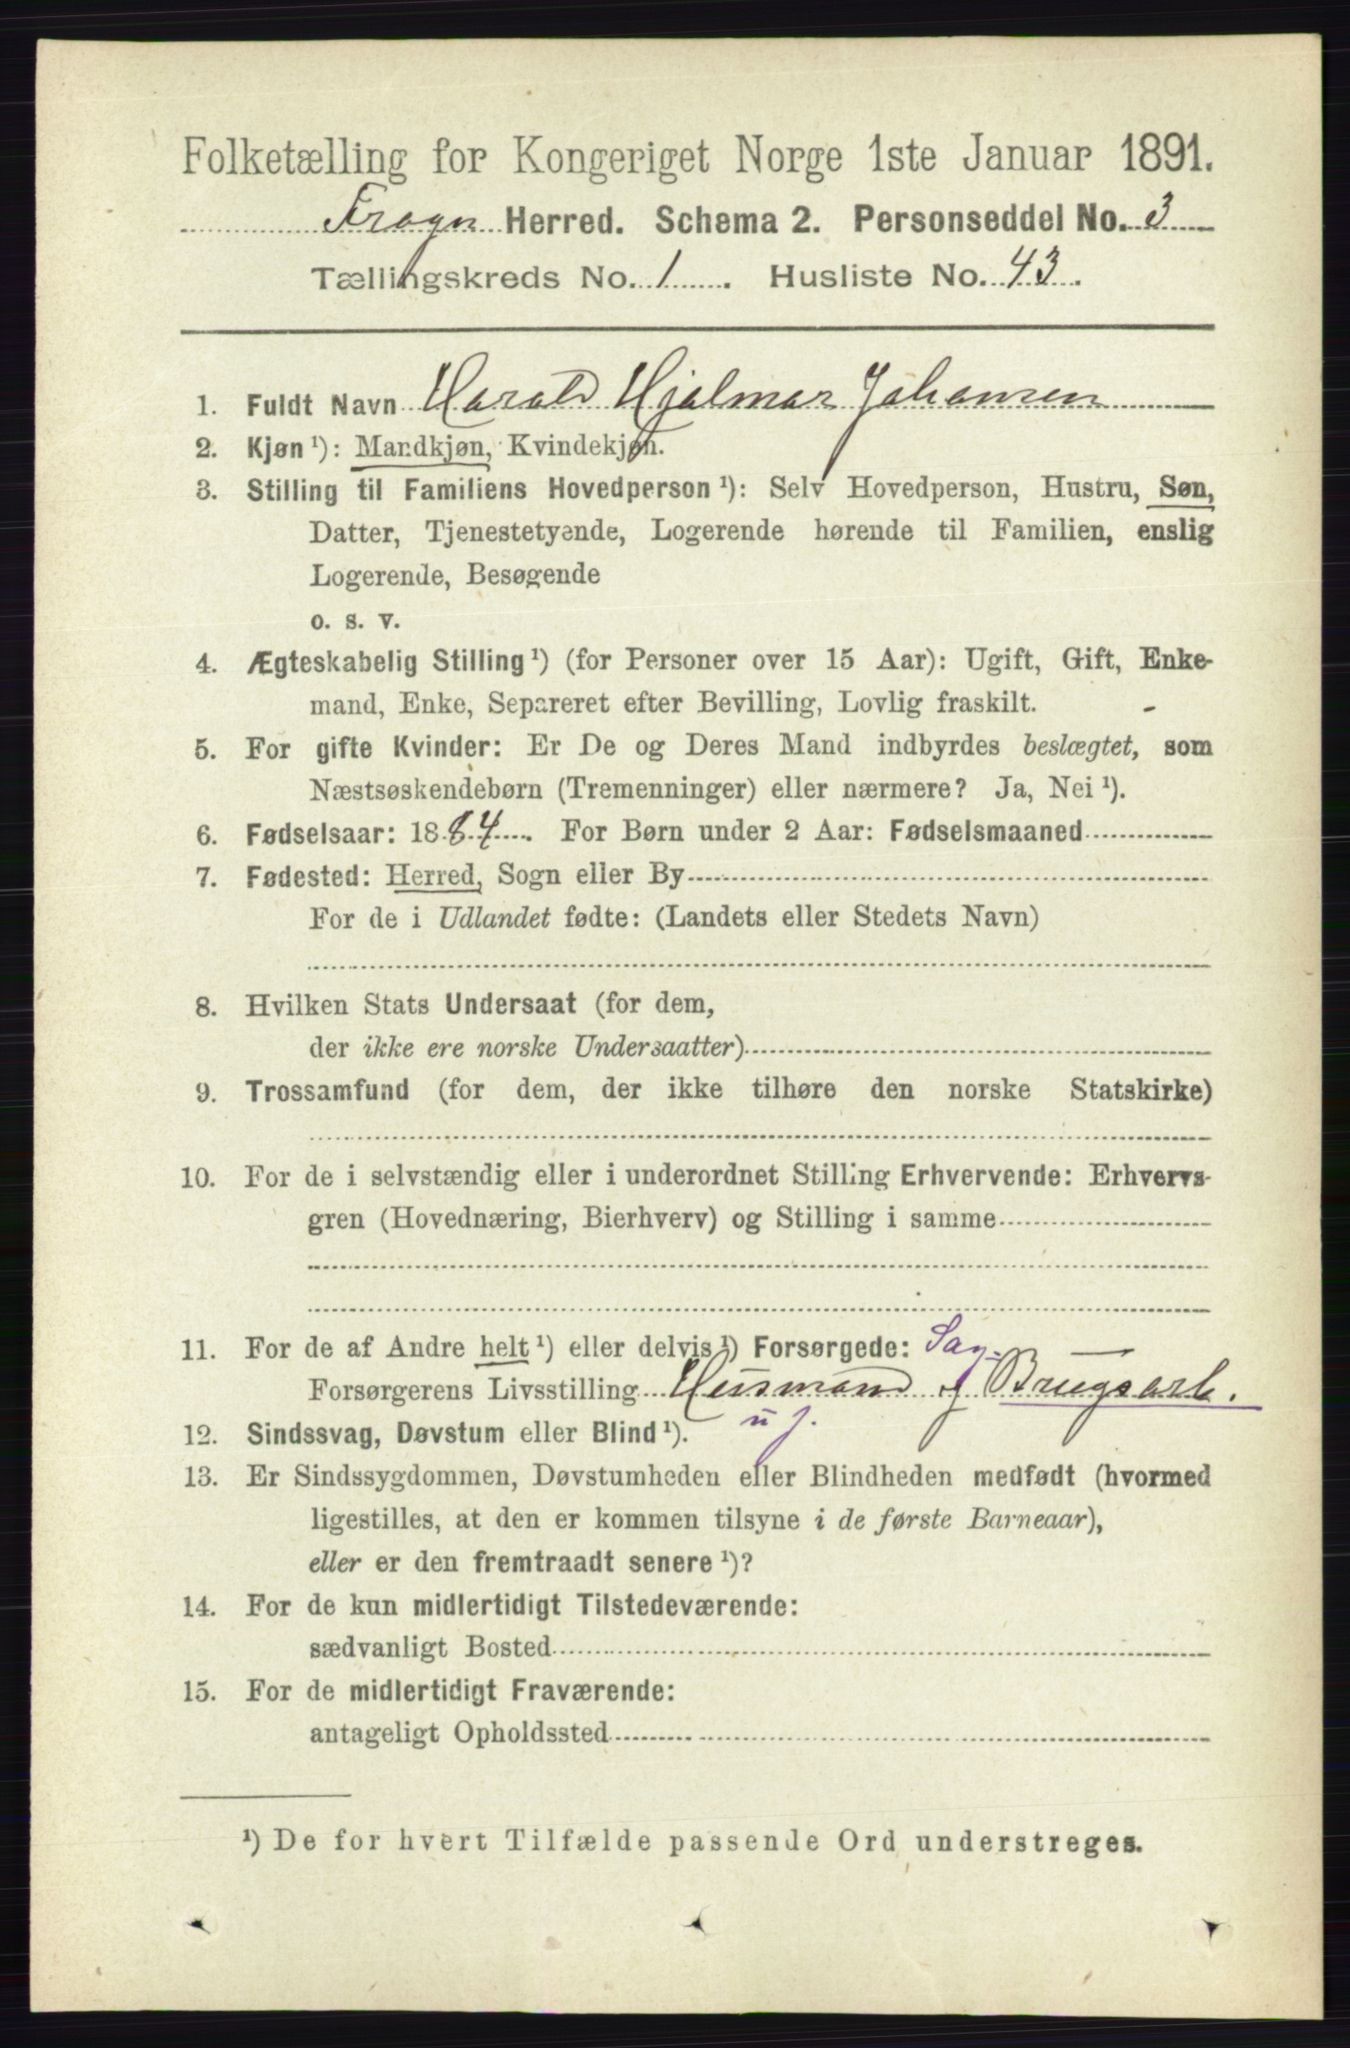 Folketælling for Kongeriget Norge 1ste Januar 1891.
Frogn Herred. Schema 2. Personseddel No. 3
Tællingskreds No. 1. Husliste No. 43.
1. Fuldt Navn Harald Hjalmar Johansen
2. Kjøn ¹): Mandkjøn, Kvindekjøn.
3. Stilling til Familiens Hovedperson ¹): Selv Hovedperson, Hustru, Søn,
Datter, Tjenestetyende, Logerende hørende til Familien, enslig
Logerende, Besøgende
o. s. v.
4. Ægteskabelig Stilling ¹) (for Personer over 15 Aar): Ugift, Gift, Enke-
mand, Enke, Separeret efter Bevilling, Lovlig fraskilt. -
5. For gifte Kvinder: Er De og Deres Mand indbyrdes beslægtet, som
Næstsøskendebørn (Tremenninger) eller nærmere? Ja, Nei ¹).
6. Fødselsaar: 1884. For Børn under 2 Aar: Fødselsmaaned
7. Fødested: Herred, Sogn eller By
For de i Udlandet fødte: (Landets eller Stedets Navn)
8. Hvilken Stats Undersaat (for dem,
der ikke ere norske Undersaatter)
9. Trossamfund (for dem, der ikke tilhøre den norske Statskirke)
10. For de i selvstændig eller i underordnet Stilling Erhvervende: Erhvervs-
gren (Hovednæring, Bierhverv) og Stilling i samme
11. For de af Andre helt ¹) eller delvis ¹) Forsørgede: Sag-
Forsørgerens Livsstilling Husmand Brugsarb.
u j.
12. Sindssvag, Døvstum eller Blind ¹).
13. Er Sindssygdommen, Døvstumheden eller Blindheden medfødt (hvormed
ligestilles, at den er kommen tilsyne i de første Barneaar),
eller er den fremtraadt senere ¹)?
14. For de kun midlertidigt Tilstedeværende:
sædvanligt Bosted
15. For de midlertidigt Fraværende:
antageligt Opholdssted
¹) De for hvert Tilfælde passende Ord understreges.